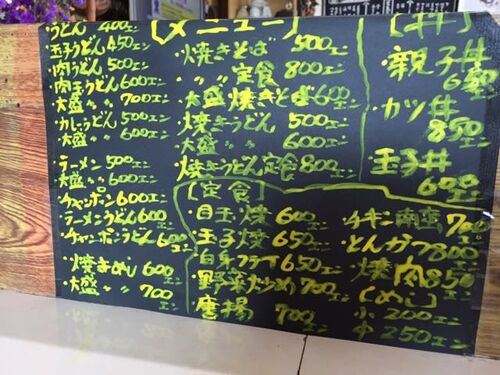 うどん 400エン
玉子うどん 450エン
肉うどん 500エン
肉玉うどん 600エン
大盛 〃 〃 700エン
カレーうどん 500エン
大盛 〃 〃 600エン
・ラーメン 500エン
大盛 〃 600エン
・チャンポン 600エン
ラーメンうどん 600エン
・チャンポンうどん 600エン
・焼きめし 600エン
・大盛 〃 〃 700エン
[メニュー]
・焼きそば 500エン
〃 〃 定食 800エン
・大盛 焼きそば 600エン
・焼きうどん 500エン
大盛 〃 600エン
・焼きうどん定食 800エン
[丼]
・親子丼
650エン
・カツ丼
850エン
・玉子丼
600エン
[定食]
・目玉焼 600エン
・玉子焼 650エン
・白身フライ 650エン
・野菜炒め 700エン
・唐揚 700エン
・チキン南蛮 700エン
・とんかつ 800エン
・焼肉 850エン
[めし]
小 200エン
中 250エン